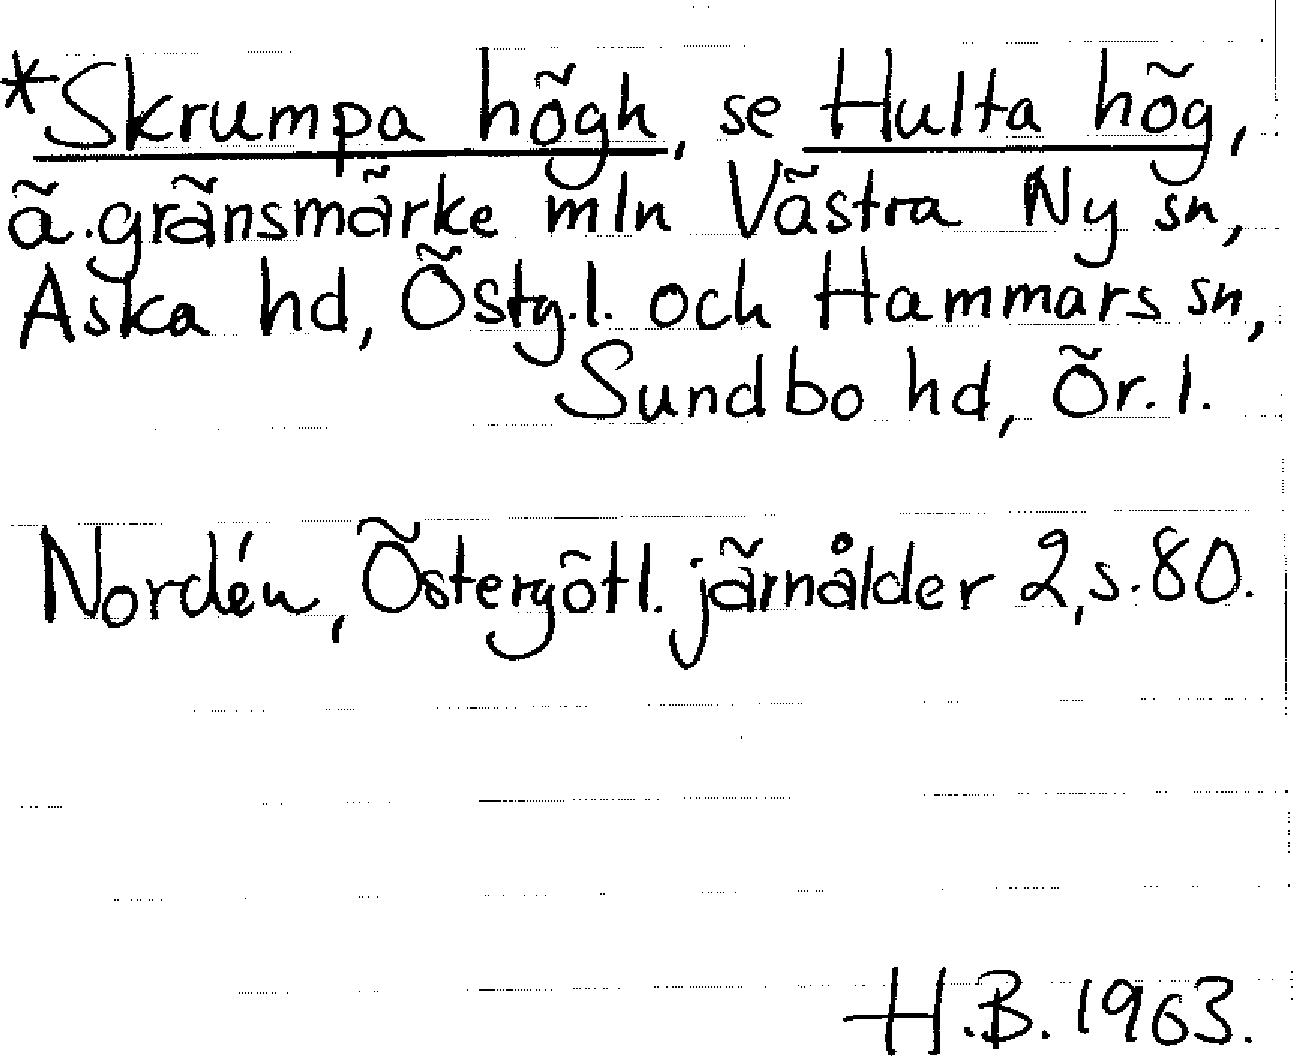 *Skrumpa högh, se Hulta hög,
ä. gränsmärke mln Västra Ny sn,
Aska hd, Östg.l. och Hammars sn,
Sundbo hd, Ör.l.
Nordén, Östergötl. järnålder 2, s. 80.
H.B. 1963.